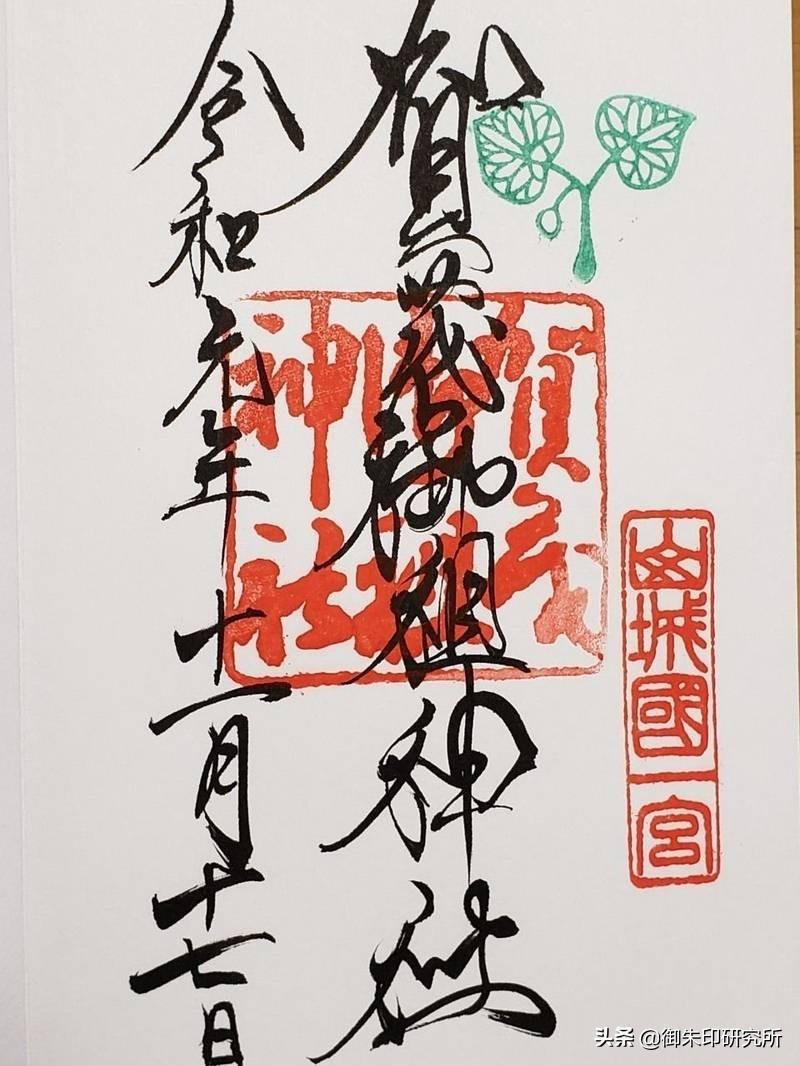 山城國一宮
賀茂御祖神社
賀茂御祖神社
令和元年十一月十七日
头条 @御朱印研究所